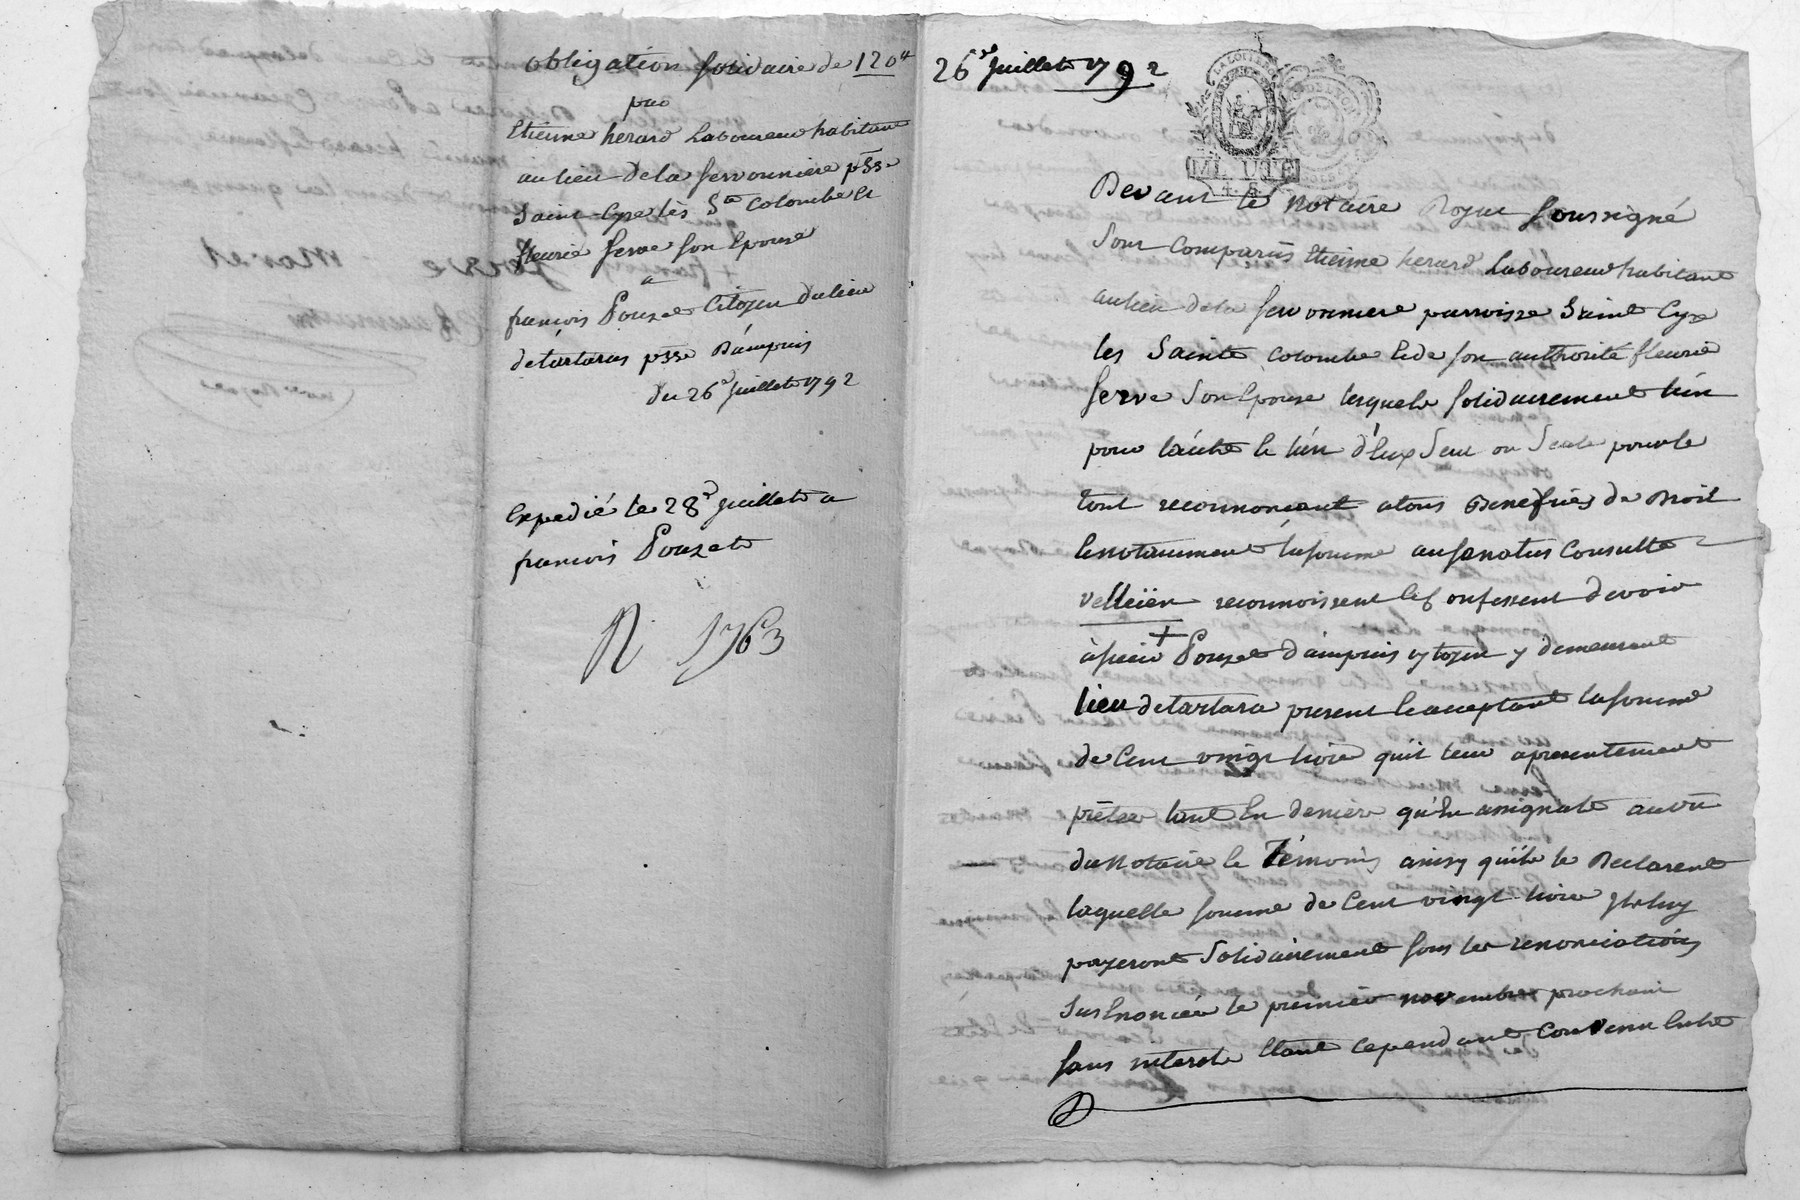 obligation solidaire de 120 ₶
par
Etienne herard Laboureur habitant
au lieu de la servonniere psse
Saint Cyre lès Ste Colombe Et
fleurie serve son Epouse
a
francois Pouzet Citoyen du lieu
de tartaras psse D'ampuis
du 26e Juillet 1792
Expedié le 28e Juillet a
francois Pouzet
N 1763
26e Juillet 1792
MI UTE
4 S
Devant le Notaire Royal Soussigné
Sont Comparûs Etienne herard Laboureur habitant
au lieu de la servonniere parroisse Saint Cyre
les Sainte Colombe Et de son authorité fleurie
Serve son Epouse lesquels solidairement l'un
pour l'autre le l'un d'Eux Seul ou Seule pour le
tout reconnoncant a tous Benefices de Droit
Et notamment la femme au senatus Consulte
velleïen reconnoissent Et Confessent devoir
à sieur + Pouzet d'ampuis cytoyen y demeurant
lieu de tartara present Et acceptant la somme
de Cent vingt livre qu'il leur a presentement
prêtée tant En deniers qu'En assignats au vû
du Notaire Et Témoins ainsy qu'ils le Declarent
laquelle somme de Cent vingt livre Ils luy
payeront Solidairement sous les renonciations
sus Enoncées le premier novembre prochain
sans interets Etant cependant Convenu Entre